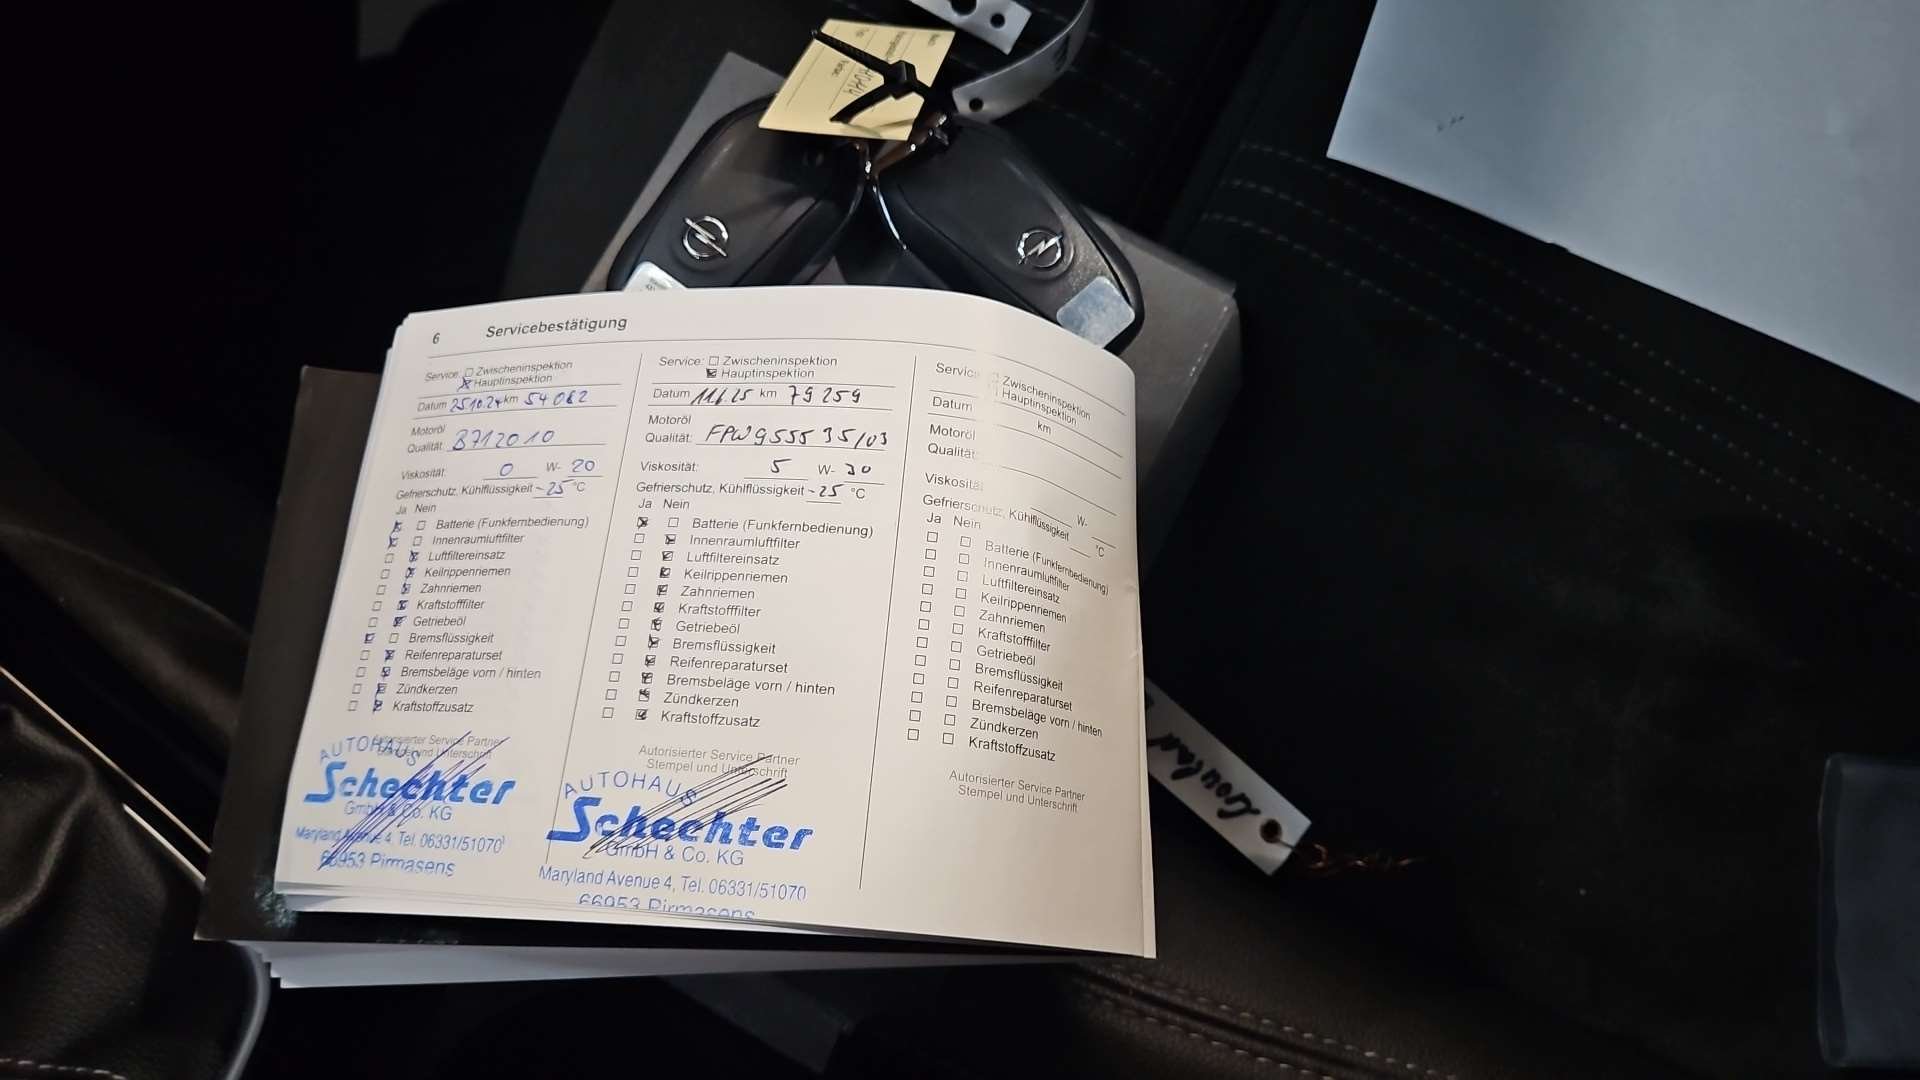 6 Servicebestätigung
Service: Zwischeninspektion
Hauptinspektion
Datum 25.10.24 km 54 082
Motoröl
Qualität: B712010
Viskosität: 0 W- 20
Gefrierschutz, Kühlflüssigkeit -25 °C
Ja Nein
Batterie (Funkfernbedienung)
Innenraumluftfilter
Luftfiltereinsatz
Keilrippenriemen
Zahnriemen
Kraftstofffilter
Getriebeöl
Bremsflüssigkeit
Reifenreparaturset
Bremsbeläge vorn / hinten
Zündkerzen
Kraftstoffzusatz
Autorisierter Service Partner
Stempel und Unterschrift
AUTOHAUS
Schechter
GmbH & Co. KG
Maryland Avenue 4, Tel. 06331/51070
66953 Pirmasens
Service: Zwischeninspektion
Hauptinspektion
Datum 11.6.25 km 79 259
Motoröl
Qualität: FPW9555 35/03
Viskosität: 5 W- 30
Gefrierschutz, Kühlflüssigkeit -25 °C
Ja Nein
Batterie (Funkfernbedienung)
Innenraumluftfilter
Luftfiltereinsatz
Keilrippenriemen
Zahnriemen
Kraftstofffilter
Getriebeöl
Bremsflüssigkeit
Reifenreparaturset
Bremsbeläge vorn / hinten
Zündkerzen
Kraftstoffzusatz
Autorisierter Service Partner
Stempel und Unterschrift
AUTOHAUS
Schechter
GmbH & Co. KG
Maryland Avenue 4, Tel. 06331/51070
66953 Pirmasens
Service: Zwischeninspektion
Hauptinspektion
Datum km
Motoröl
Qualität:
Viskosität: W-
Gefrierschutz, Kühlflüssigkeit °C
Ja Nein
Batterie (Funkfernbedienung)
Innenraumluftfilter
Luftfiltereinsatz
Keilrippenriemen
Zahnriemen
Kraftstofffilter
Getriebeöl
Bremsflüssigkeit
Reifenreparaturset
Bremsbeläge vorn / hinten
Zündkerzen
Kraftstoffzusatz
Autorisierter Service Partner
Stempel und Unterschrift